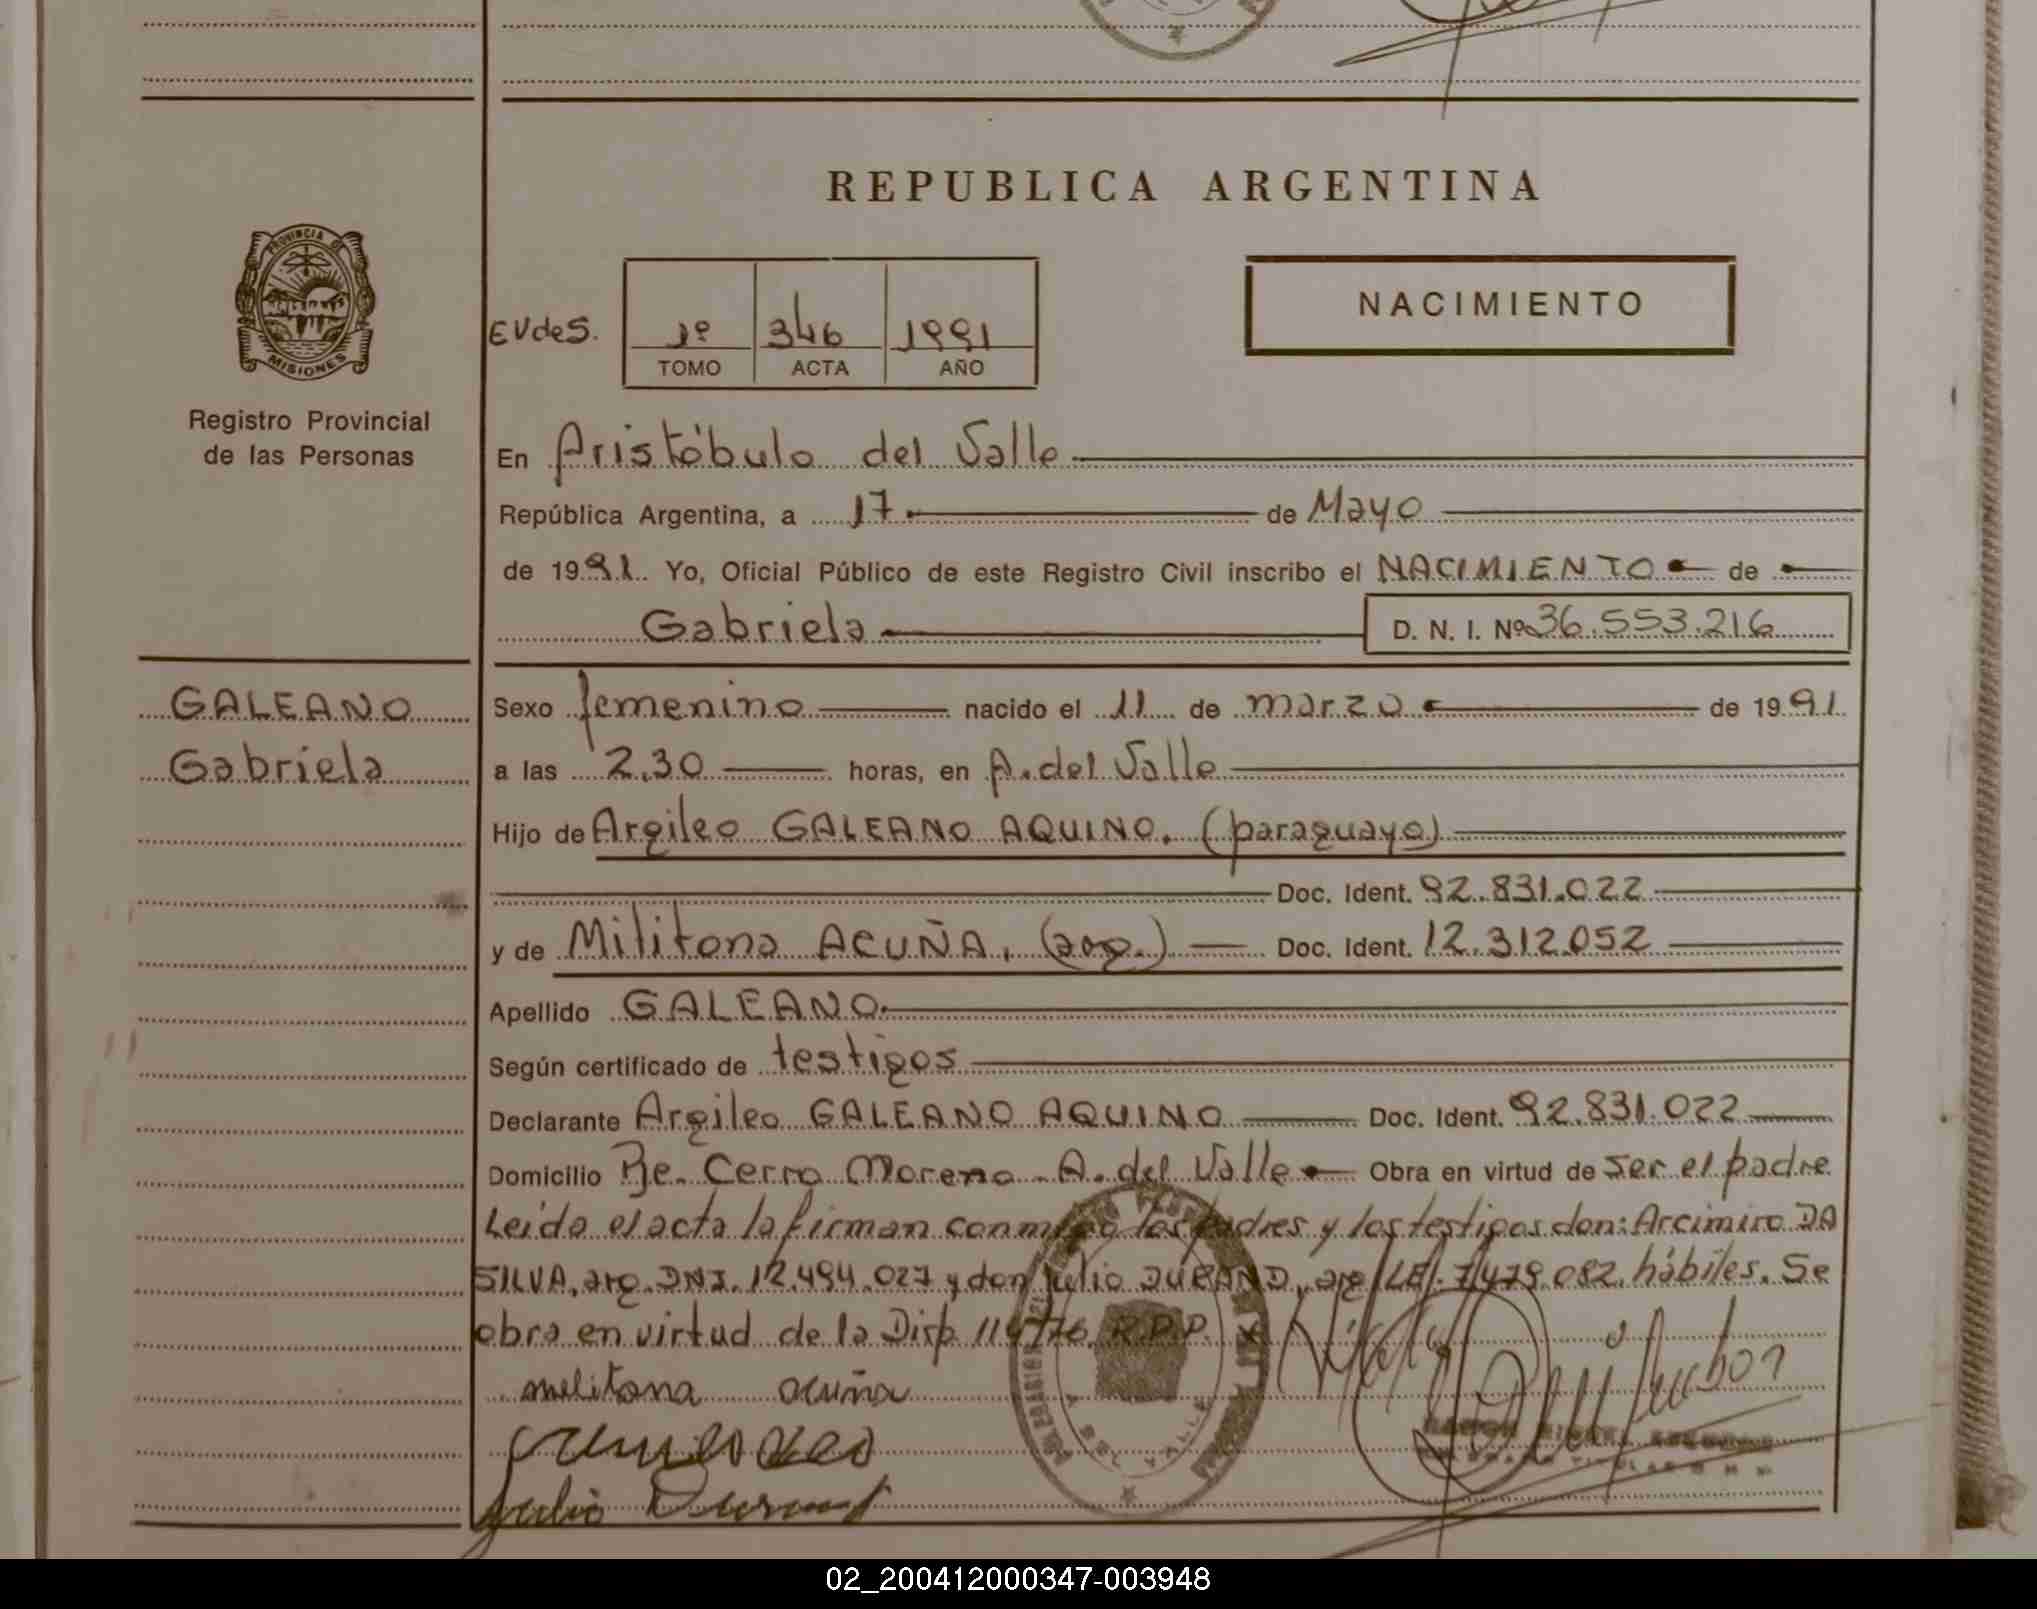 REPUBLICA ARGENTINA
PROVINCIA DE
MISIONES
Registro Provincial
de las Personas
EVdeS.
1º 346 1991
TOMO ACTA AÑO
NACIMIENTO
En Aristóbulo del Valle
República Argentina, a 17 de Mayo
de 1991. Yo, Oficial Público de este Registro Civil inscribo el NACIMIENTO de
Gabriela D. N. I. Nº 36.553.216
GALEANO
Gabriela
Sexo femenino nacido el 11 de marzo de 1991
a las 2.30 horas, en A. del Valle
Hijo de Argileo GALEANO AQUINO. (paraguayo)
Doc. Ident. 92.831.022
y de Militona ACUÑA, (arg.) Doc. Ident. 12.312.052
Apellido GALEANO.
Según certificado de testigos
Declarante Argileo GALEANO AQUINO Doc. Ident. 92.831.022
Domicilio Pje. Cerro Moreno - A. del Valle Obra en virtud de ser el padre
Leída el acta la firman conmigo los padres y los testigos don: Arcimiro DA
SILVA, arg. DNI. 12.494.027 y don Julio DURAND, arg. LE. 7.479.082. hábiles. Se
obra en virtud de la Disp. 114/76. R.P.P.
melitona acuña
Julio
02_200412000347-003948